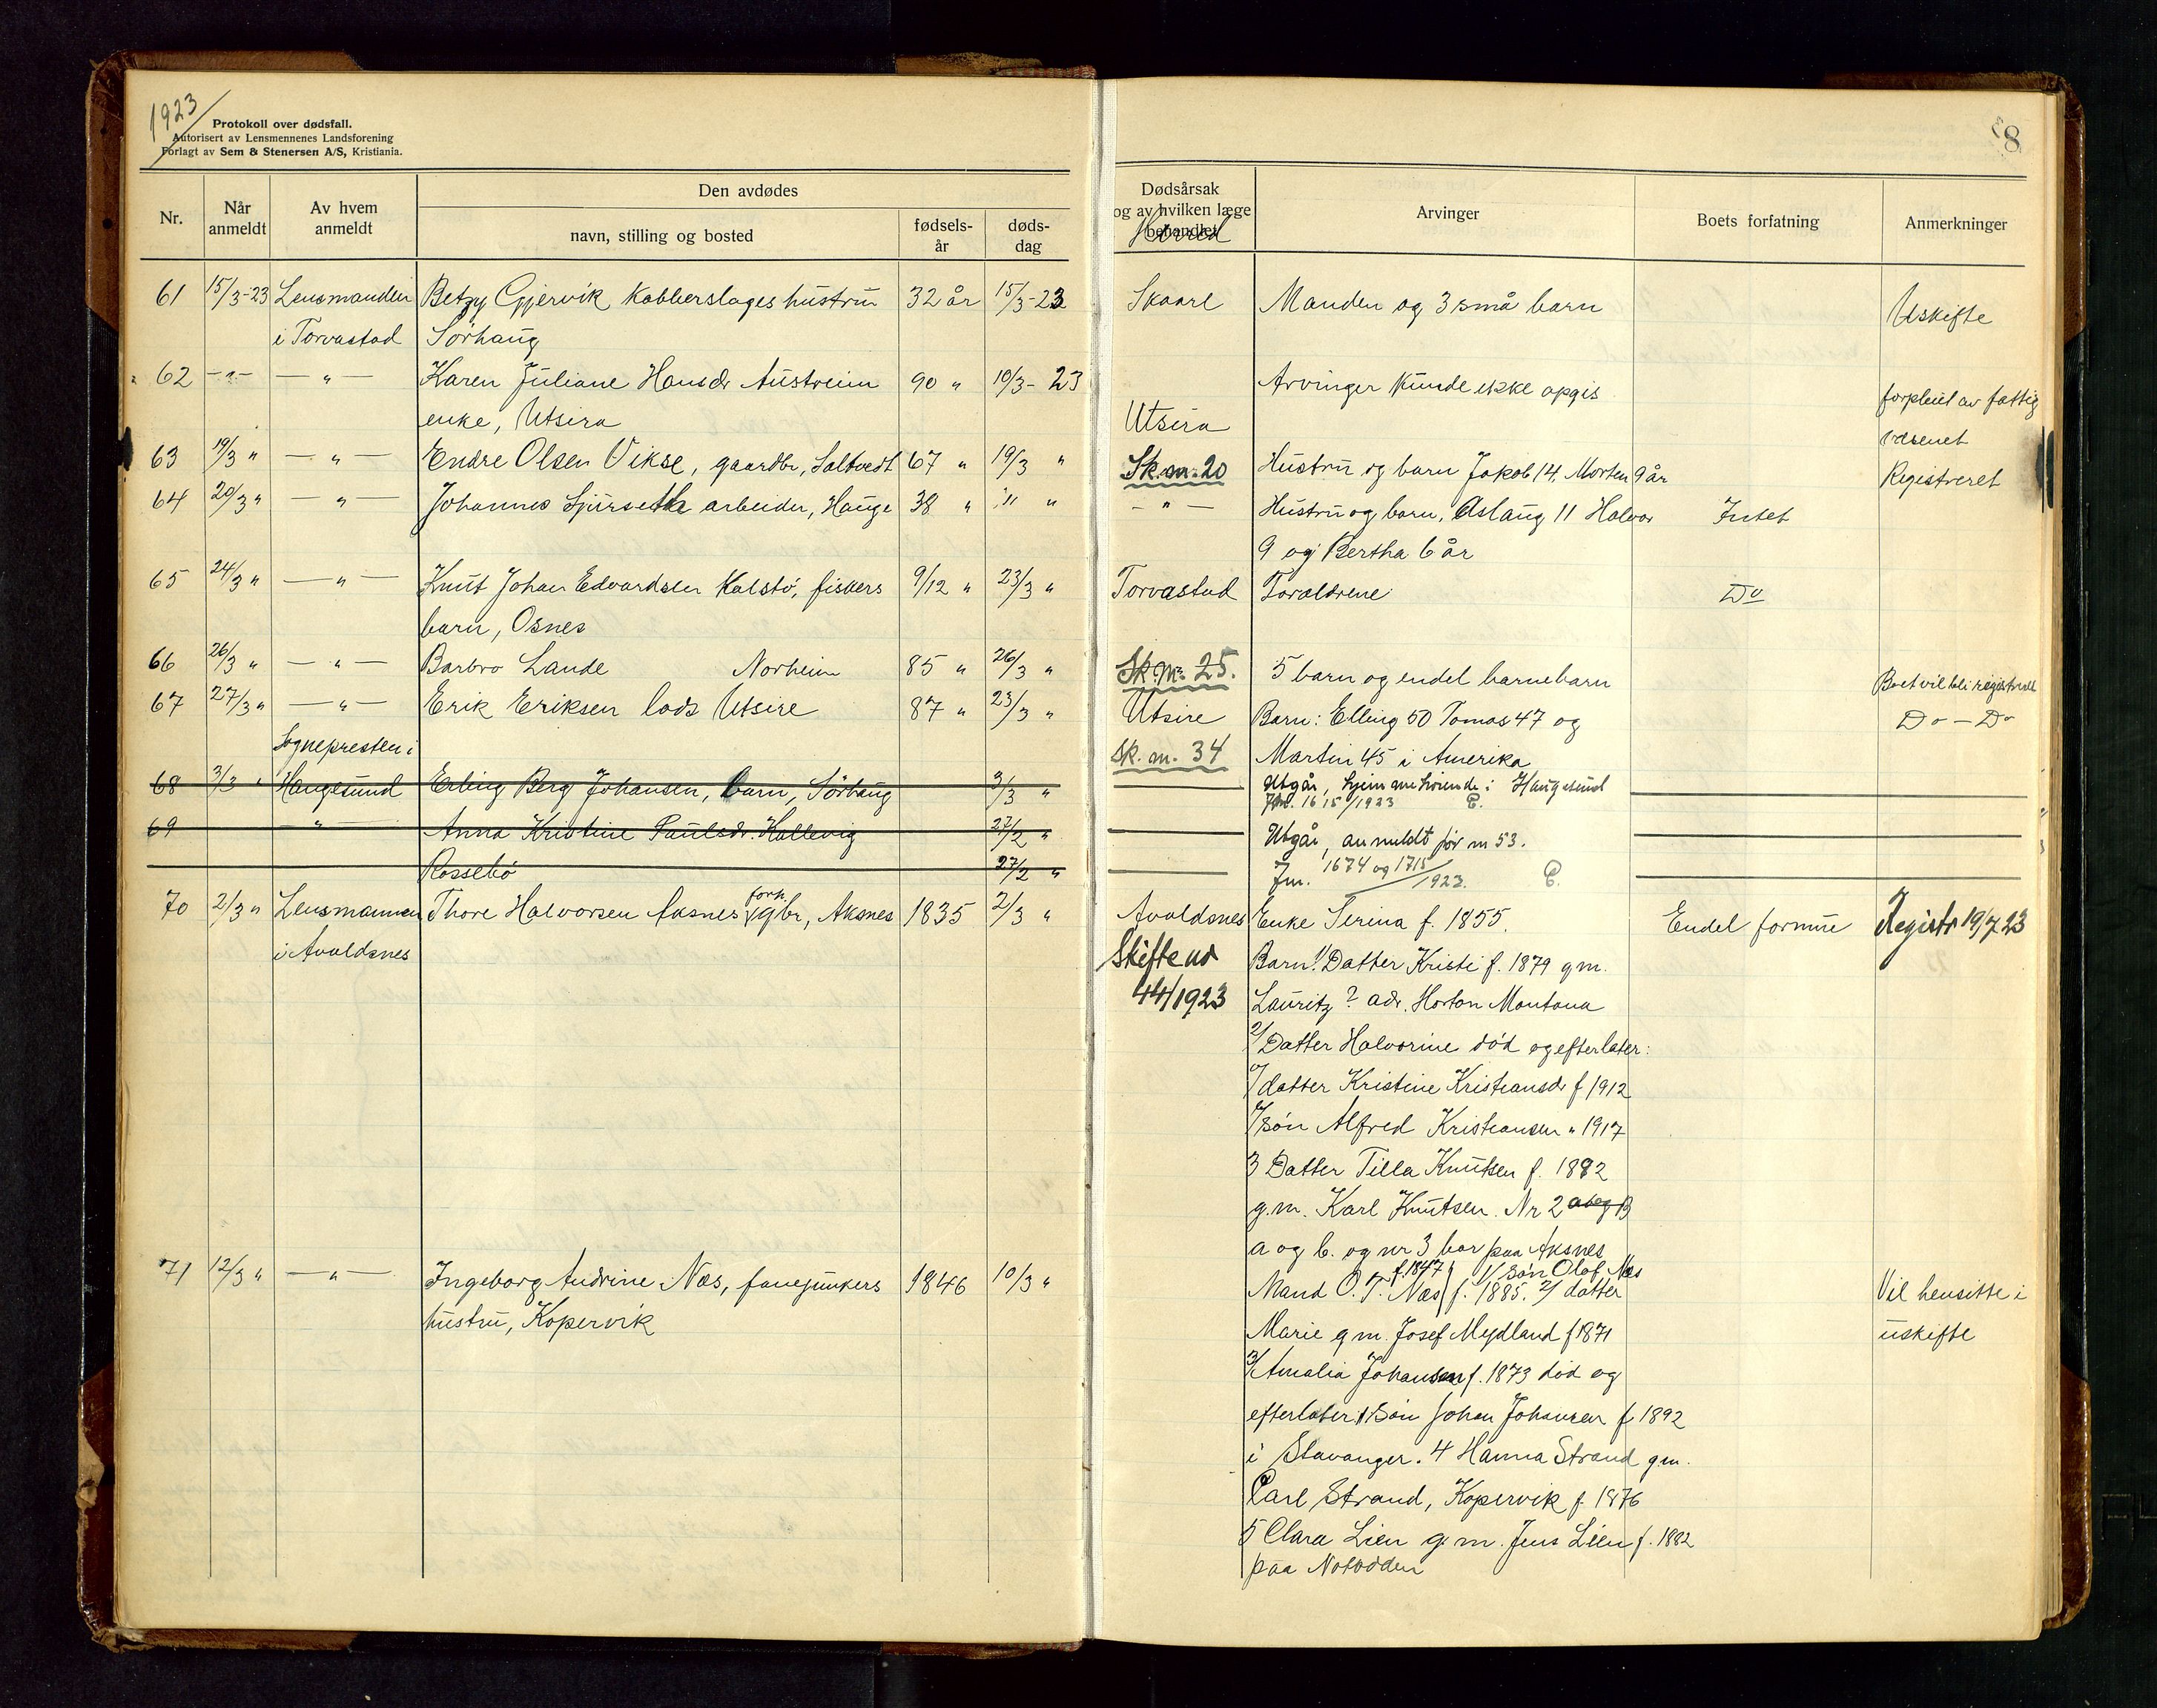 1923
Protokoll over dødsfall.
Autorisert av Lensmennenes Landsforening
Forlagt av Sem & Stenersen A/S, Kristiania.
8
Nr.
Når anmeldt
Av hvem anmeldt
Den avdødes
navn, stilling og bosted
fødsels-år
døds-dag
Dødsårsak
og av hvilken læge
behandlet
Herred
Arvinger
Boets forfatning
Anmerkninger
61 15/3-23 Lensmanden Betzy Gjervik Kobberslages hustru 32 år 15/3-23 Skaare Manden og 3 små barn Uskifte
i Torvastad Sørhaug
62 -"- - " - Karen Juliane Hansdr Austreim 90 " 10/3-23 Arvinger kunde ikke opgis forpleiet av fattig
enke, Utsira Utsira væsenet
63 19/3 " - " - Endre Olsen Vikse, gaardbr, Saltvedt 67 " 19/3 " Sk.m. 20 Hustru og barn Jakob 14, Morten 9 år Registreret
64 20/3 " - " - Johannes arbeider, Hauge 38 " " " - " - Hustru og barn, Aslaug 11 Halvor Intet
9 og Bertha 6 år
65 24/3 " - " - Knut Johan Edvardsen Kalstø, fiskers 9/12 " 23/3 " Torvastad Forældrene Do
barn, Osnes
66 26/3 " - " - Barbro Lande Norheim 85 " 26/3 " Sk.m. 25. 5 barn og endel barnebarn Boet vil bli registreret
67 27/3 " - " - Erik Eriksen lods Utsire 87 " 23/3 " Utsire Barn: Elling 50 Tomas 47 og Do - Do
Sognepresten i Sk.m. 34 Martin 45 i Amerika
68 3/3 " Haugesund Erling Berg Johansen, barn, Sørhaug 3/3 " Utgår, hjemmehørende i Haugesund
Jm. 1615/1923 E.
69 " Anna Kristine Paulsdr. Kallevig 27/2 " Utgår, anmeldt før nr 53.
Rossebø 27/2 " Jm. 1674 og 1715/1923. E.
70 2/3 " Lensmannen Thore Halvorsen Aksnes forh. gbr, Aksnes 1835 2/3 " Avaldsnes Enke Serina f. 1855. Endel formue Registr 19/7 23
i Avaldsnes Skifte nr Barn: 1/ Datter Kristi f. 1879 g m.
44/1923 Lauritz ? adr. Horton Montana
2/ Datter Halvorine død og efterlater:
a/ datter Kristine Kristiansdr f 1912
b/ søn Alfred Kristiansen " 1917
3 Datter Tilla Knutsen f. 1882
g.m. Karl Knutsen. Nr 2 a og B
a og b. og nr 3 bor paa Aksnes
71 12/3 " - " - Ingeborg Andrine Næs, fanejunkers 1846 10/3 " Mand O. T. Næs f. 1847 1/ søn Olaf Næs f. 1885. 2/ datter Vil hensitte i
hustru, Kopervik Marie g m. Josef Mydland f 1871 uskifte
3/ Amalia Johansen f. 1873 død og
efterlater 1 søn Johan Johansen f 1892
i Stavanger. 4 Hanna Strand g m.
Carl Strand, Kopervik f. 1876
5 Clara Lien g. m. Jens Lien f. 1882
paa Notodden